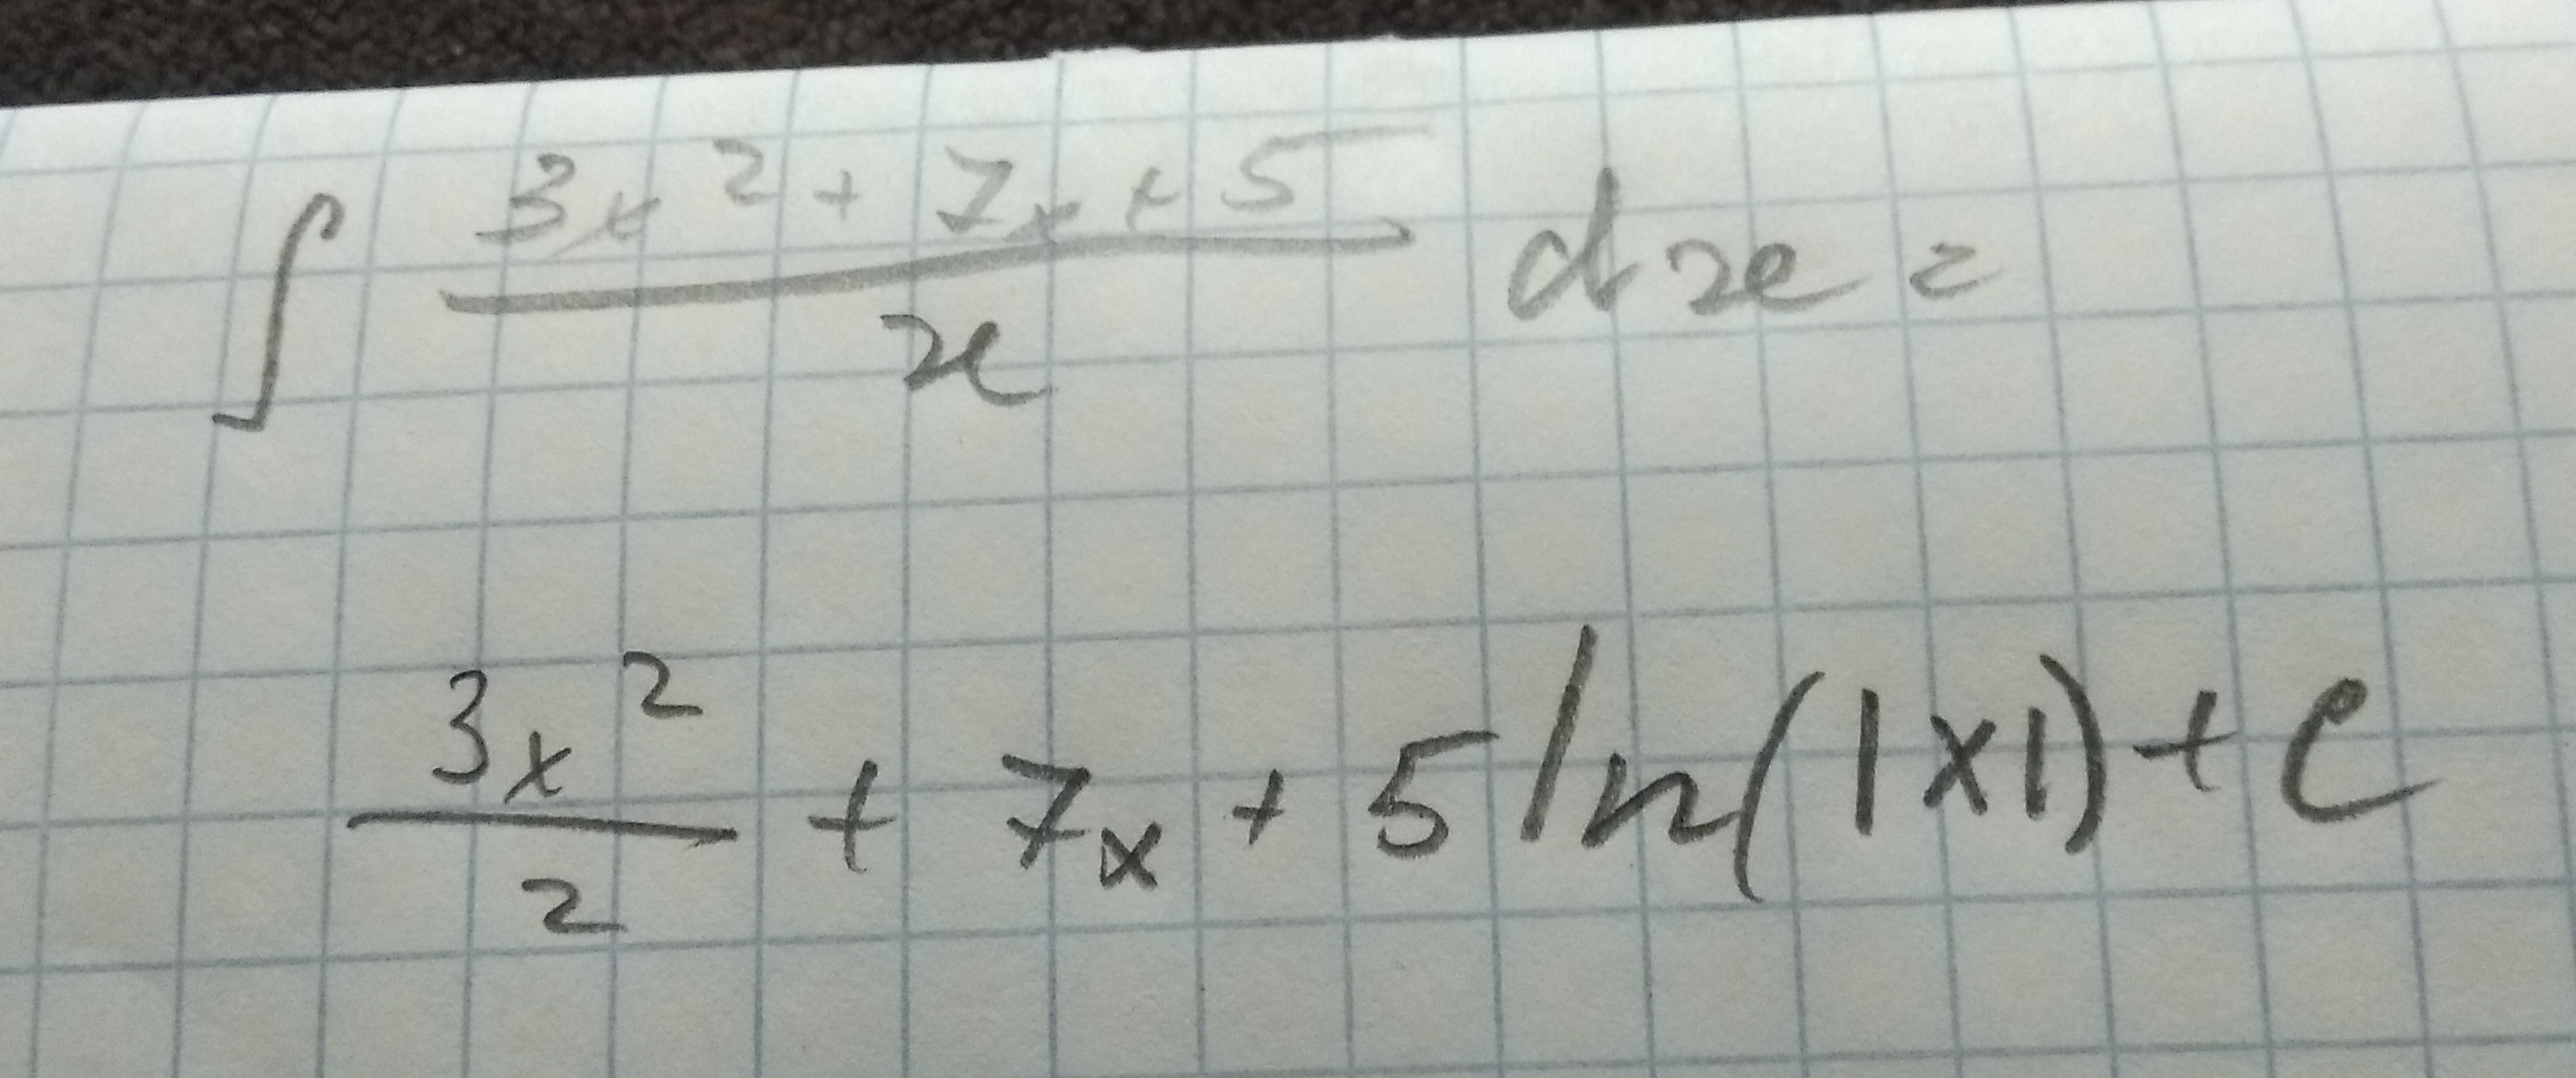 ∫ (3x² + 7x + 5)/x dx =
3x²/2 + 7x + 5 ln(|x|) + C